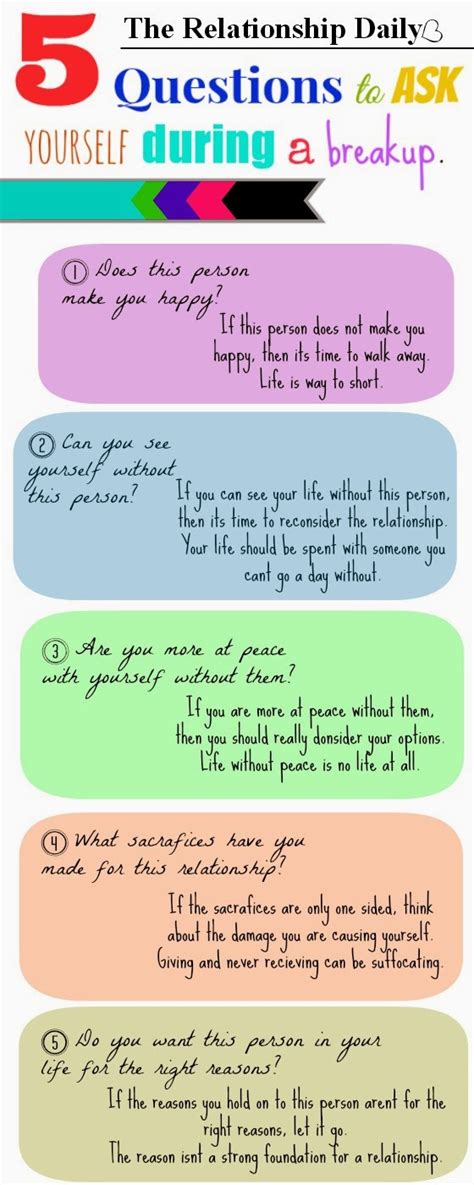 The Relationship Daily
5 Questions to ASK
YOURSELF during a breakup.
1 Does this person
make you happy?
If this person does not make you
happy, then its time to walk away.
Life is way to short.
2 Can you see
yourself without
this person?
If you can see your life without this person,
then its time to reconsider the relationship.
Your life should be spent with someone you
cant go a day without.
3 Are you more at peace
with yourself without them?
If you are more at peace without them,
then you should really donsider your options.
Life without peace is no life at all.
4 What sacrafices have you
made for this relationship?
If the sacrafices are only one sided, think
about the damage you are causing yourself.
Giving and never recieving can be suffocating.
5 Do you want this person in your
life for the right reasons?
If the reasons you hold on to this person arent for the
right reasons, let it go.
The reason isnt a strong foundation for a relationship.